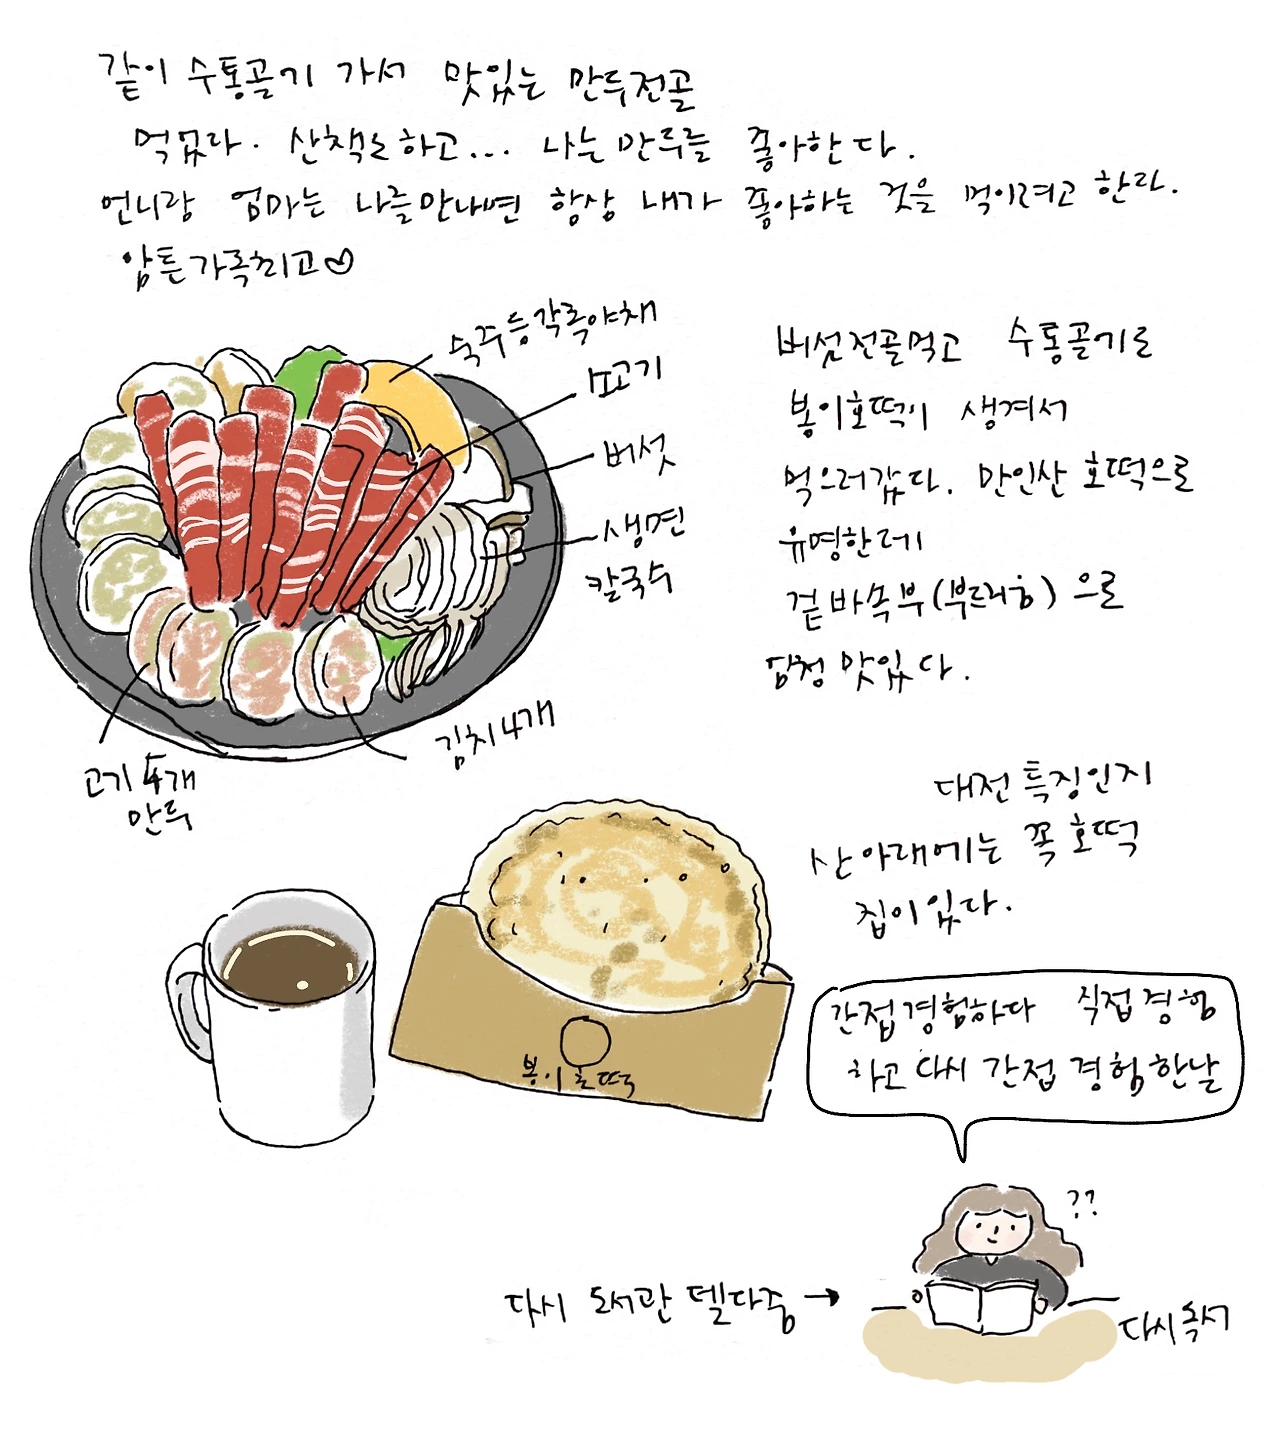 같이 수통골기 가서 맛있는 만두전골
먹었다. 산책도하고... 나는 만두를 좋아한다.
언니랑 엄마는 나를만나면 항상 내가 좋아하는 것을 먹이려고 한다.
암튼가족최고♡
숙주등각종야채
소고기
버섯
생면
칼국수
김치4개
고기 4개
만두
버섯전골먹고 수통골기로
봉이호떡이 생겨서
먹으러갔다. 만인산 호떡으로
유명한데
겉바속부(부드러함)으로
맛있다.
대전 특징인지
산아래에는 꼭 호떡
집이있다.
봉이호떡
간접경험하다 직접경험
하고 다시 간접 경험한날
??
다시 도서관 델다줌 →
다시독서